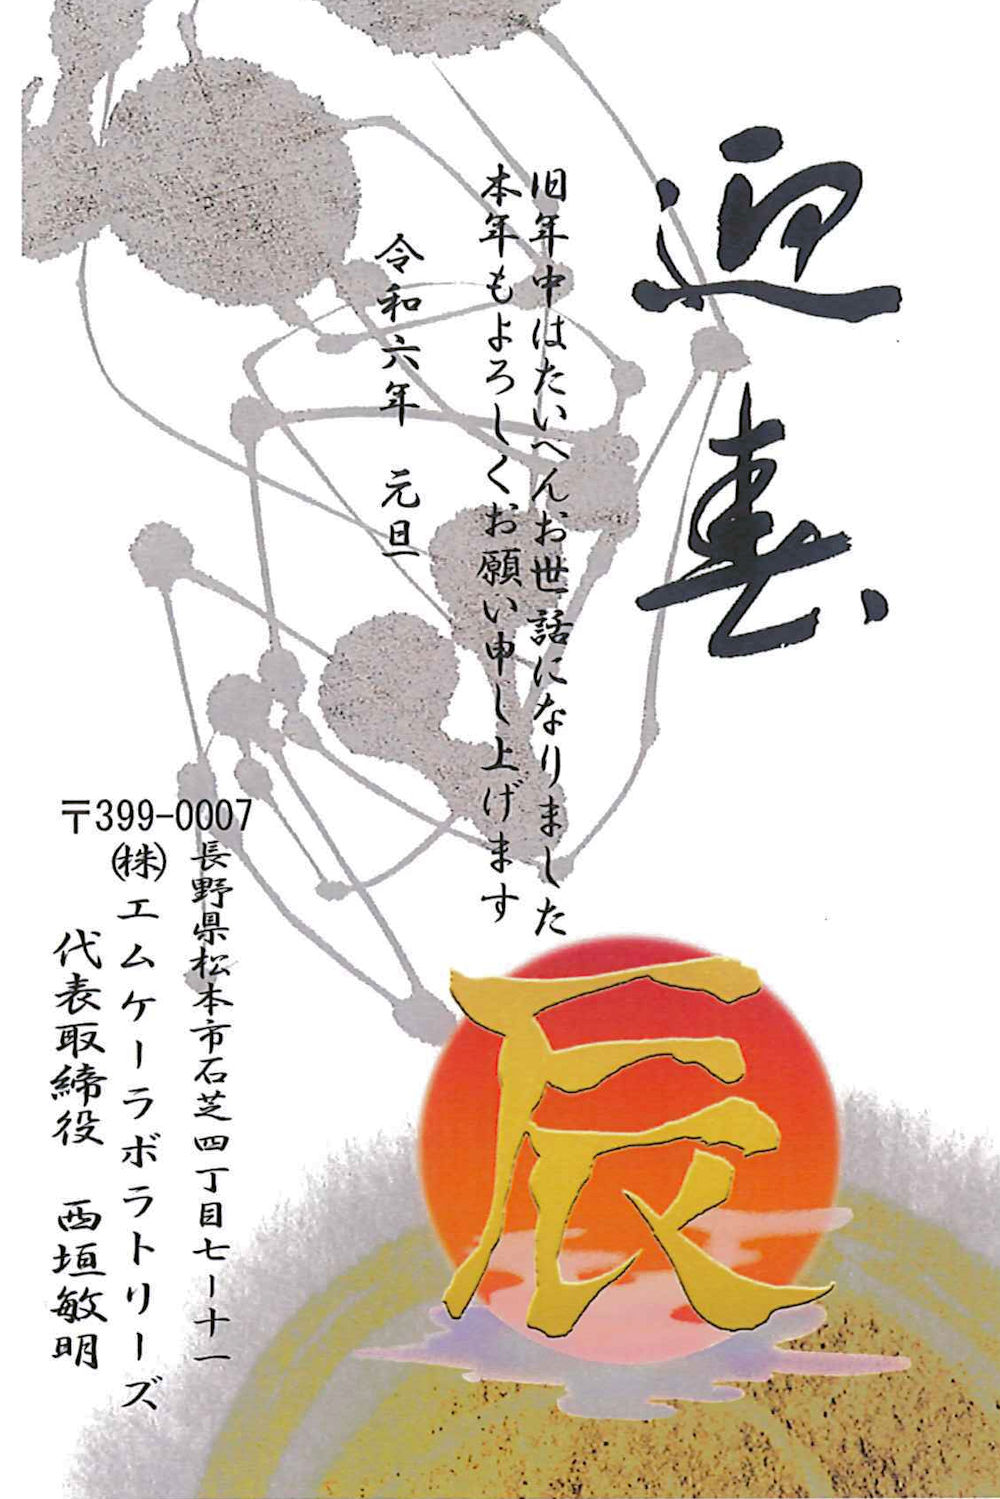 迎春
旧年中はたいへんお世話になりました
本年もよろしくお願い申し上げます
令和六年　元旦
辰
〒399-0007
長野県松本市石芝四丁目七ー十一
㈱エムケーラボラトリーズ
代表取締役　西垣敏明